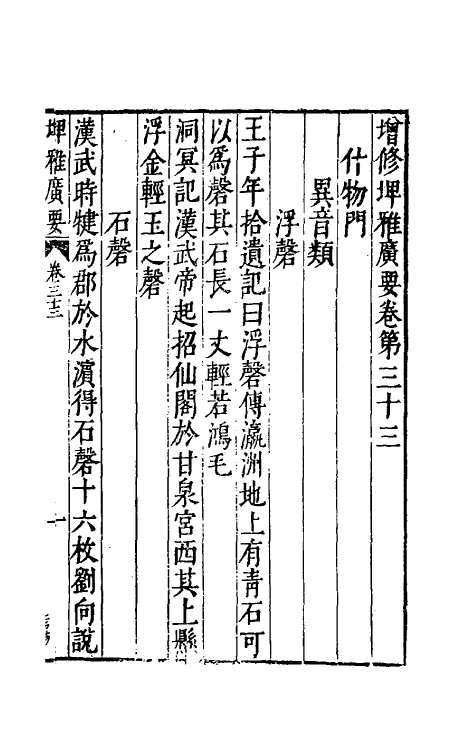 增修埤雅廣要卷第三十三
什物門
異音類
浮磬
王子年拾遺記曰浮磬傳瀛洲地上有青石可
以爲磬其石長一丈輕若鴻毛
洞冥記漢武帝起招仙閣於甘泉宮西其上縣
浮金輕玉之磬
石磬
漢武時犍爲郡於水濵得石磬十六枚劉向說
埤雅廣要 卷三十三 一